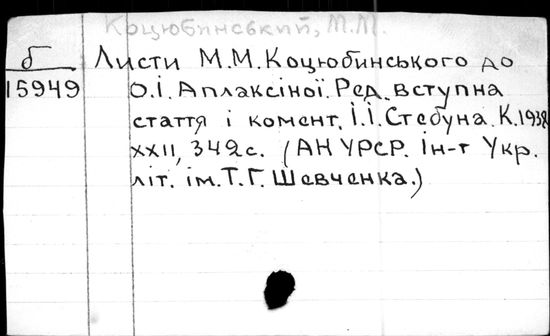 Коцюбинський, М.М.
б
15949
Листи М.М.Коцюбинського до
О.І.Аплаксіної. Ред. вступна
стаття і комент. І.І.Стебуна. К. 1938
XXII, 342с. (АН УРСР. Ін-т Укр.
літ. ім. Т.Г. Шевченка.)